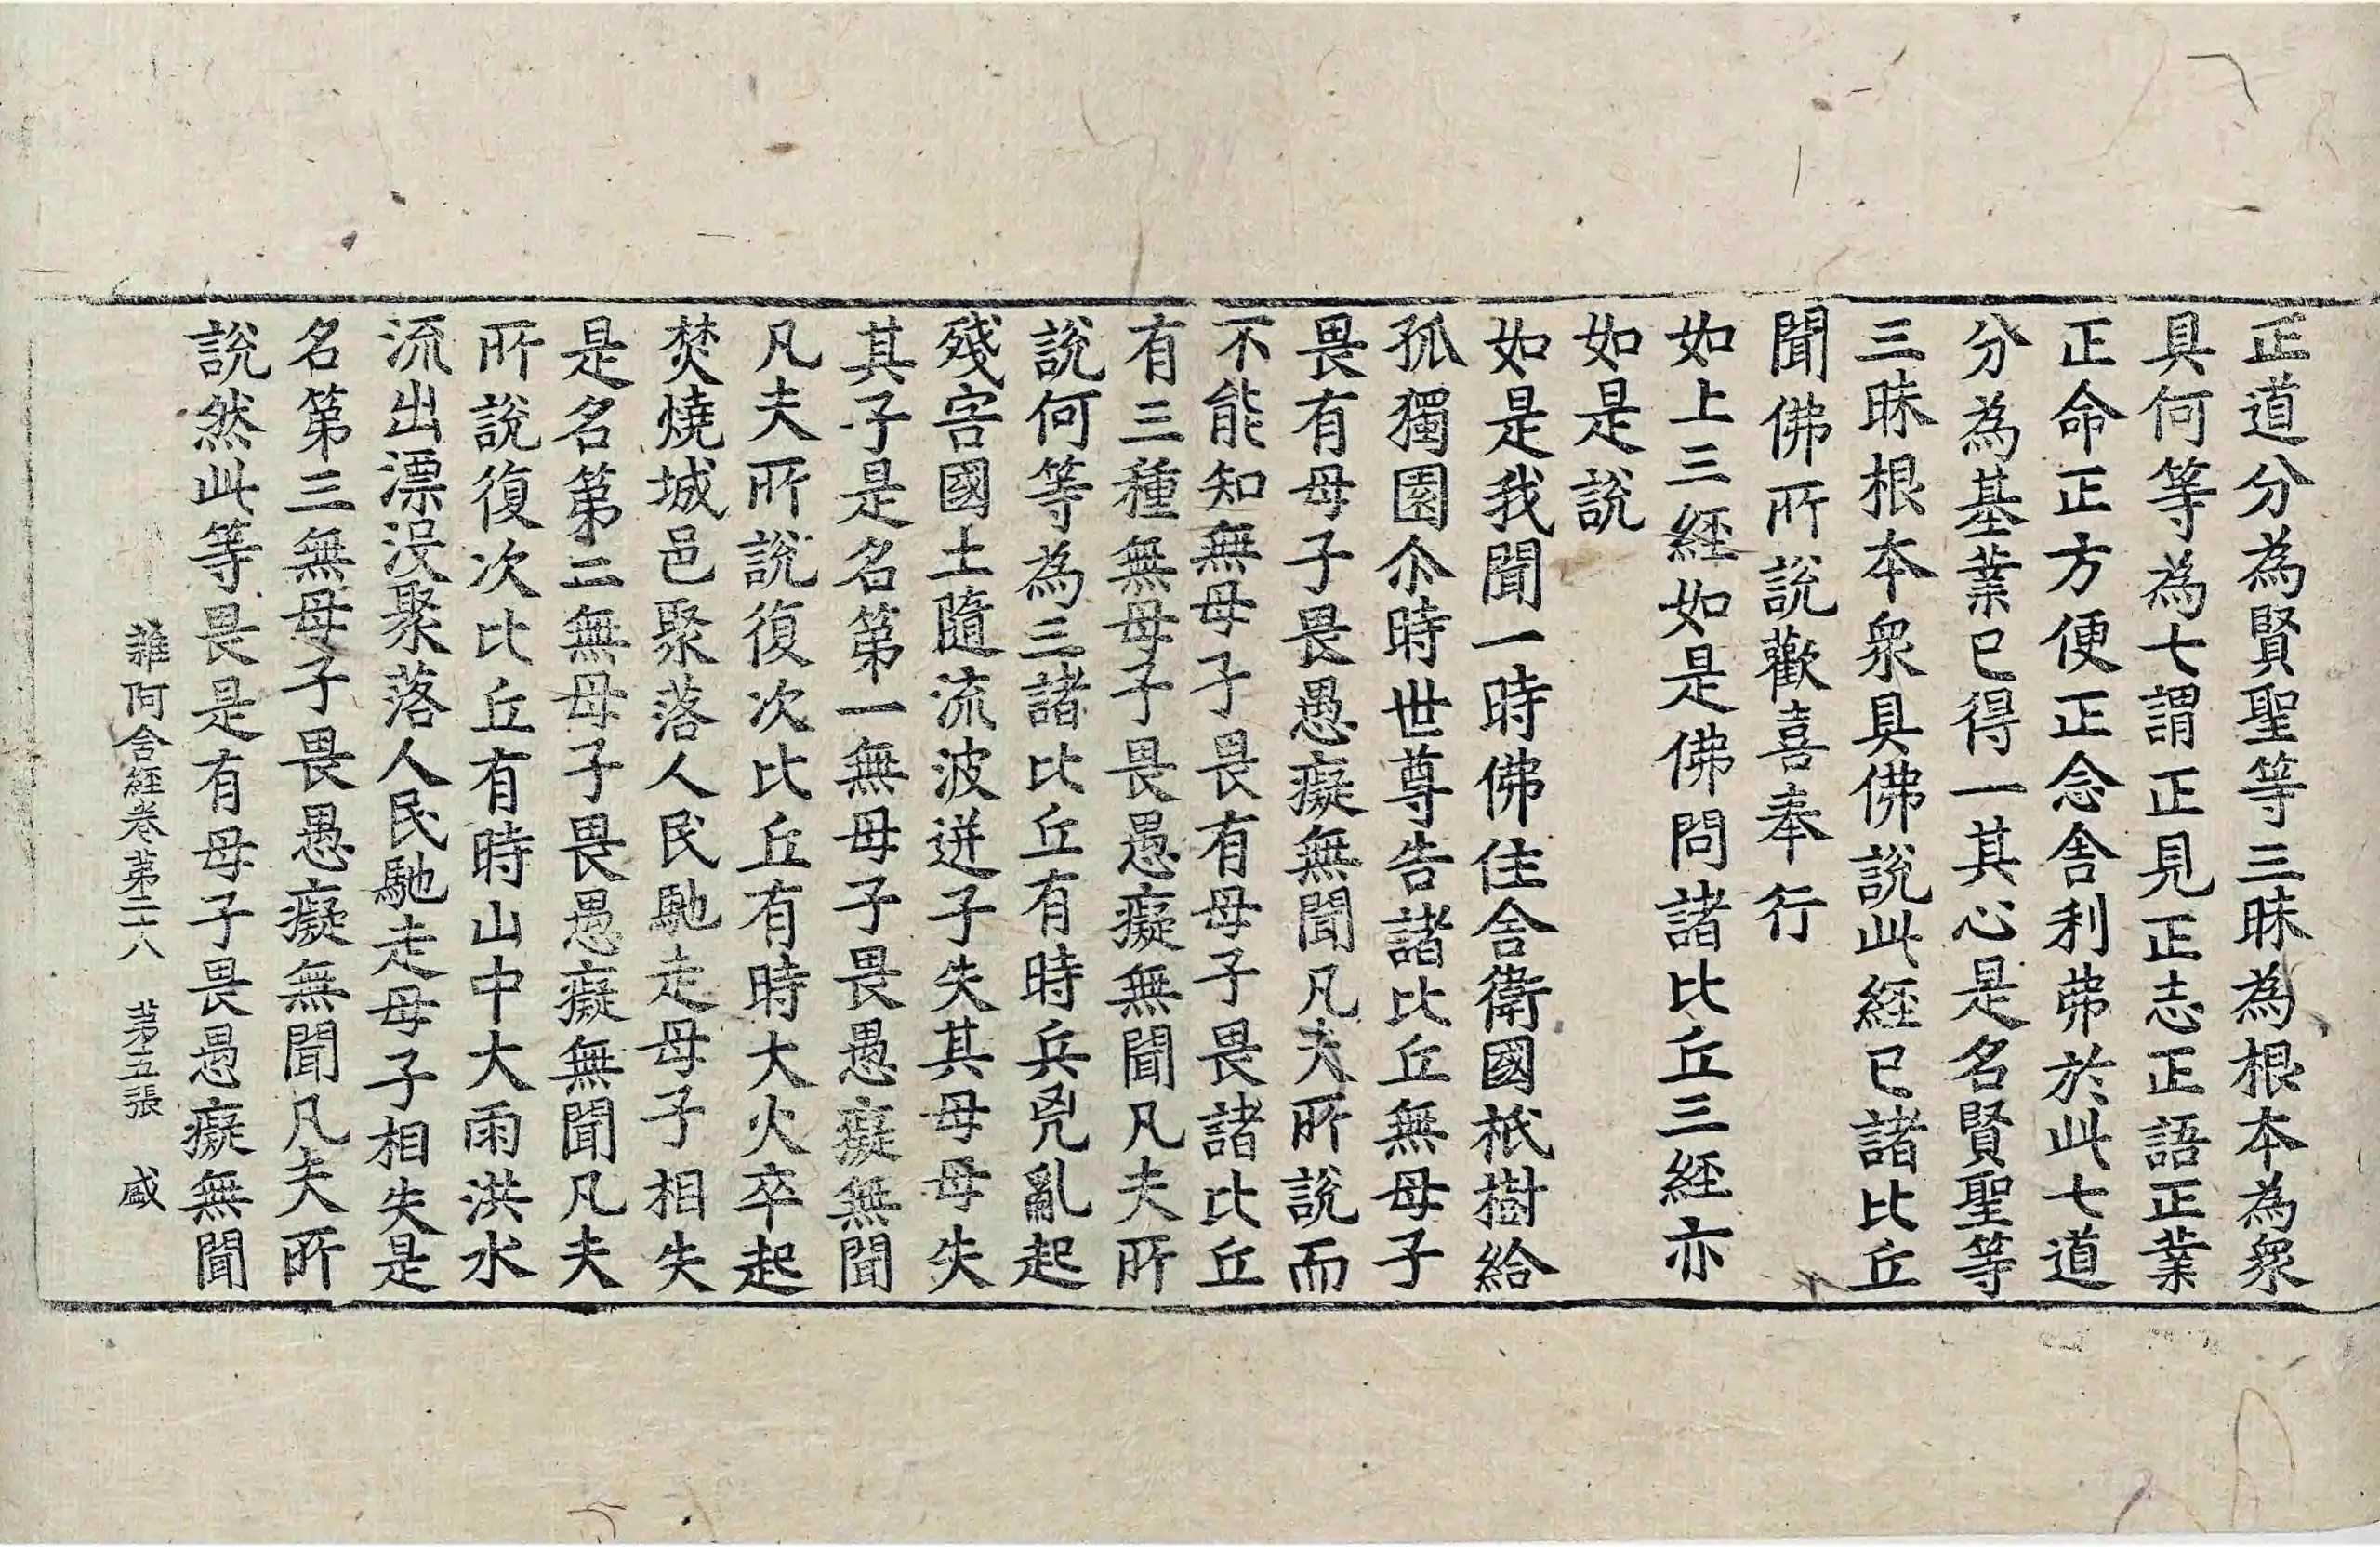 正道分為賢聖等三昧為根本為衆
具何等為七謂正見正志正語正業
正命正方便正念舍利弗於此七道
分為基業已得一其心是名賢聖等
三昧根本衆具佛說此經已諸比丘
聞佛所說歡喜奉行
如上三經如是佛問諸比丘三經亦
如是說
如是我聞一時佛住舍衛國祇樹給
孤獨園尒時世尊告諸比丘無母子
畏有母子畏愚癡無聞凡夫所說而
不能知無母子畏有母子畏諸比丘
有三種無母子畏愚癡無聞凡夫所
說何等為三諸比丘有時兵兇亂起
殘害國土隨流波迸子失其母母失
其子是名第一無母子畏愚癡無聞
凡夫所說復次比丘有時大火卒起
焚燒城邑聚落人民馳走母子相失
是名第二無母子畏愚癡無聞凡夫
所說復次比丘有時山中大雨洪水
流出漂沒聚落人民馳走母子相失是
名第三無母子畏愚癡無聞凡夫所
說然此等畏是有母子畏愚癡無聞
雜阿含經卷第二十八 第五張 盛